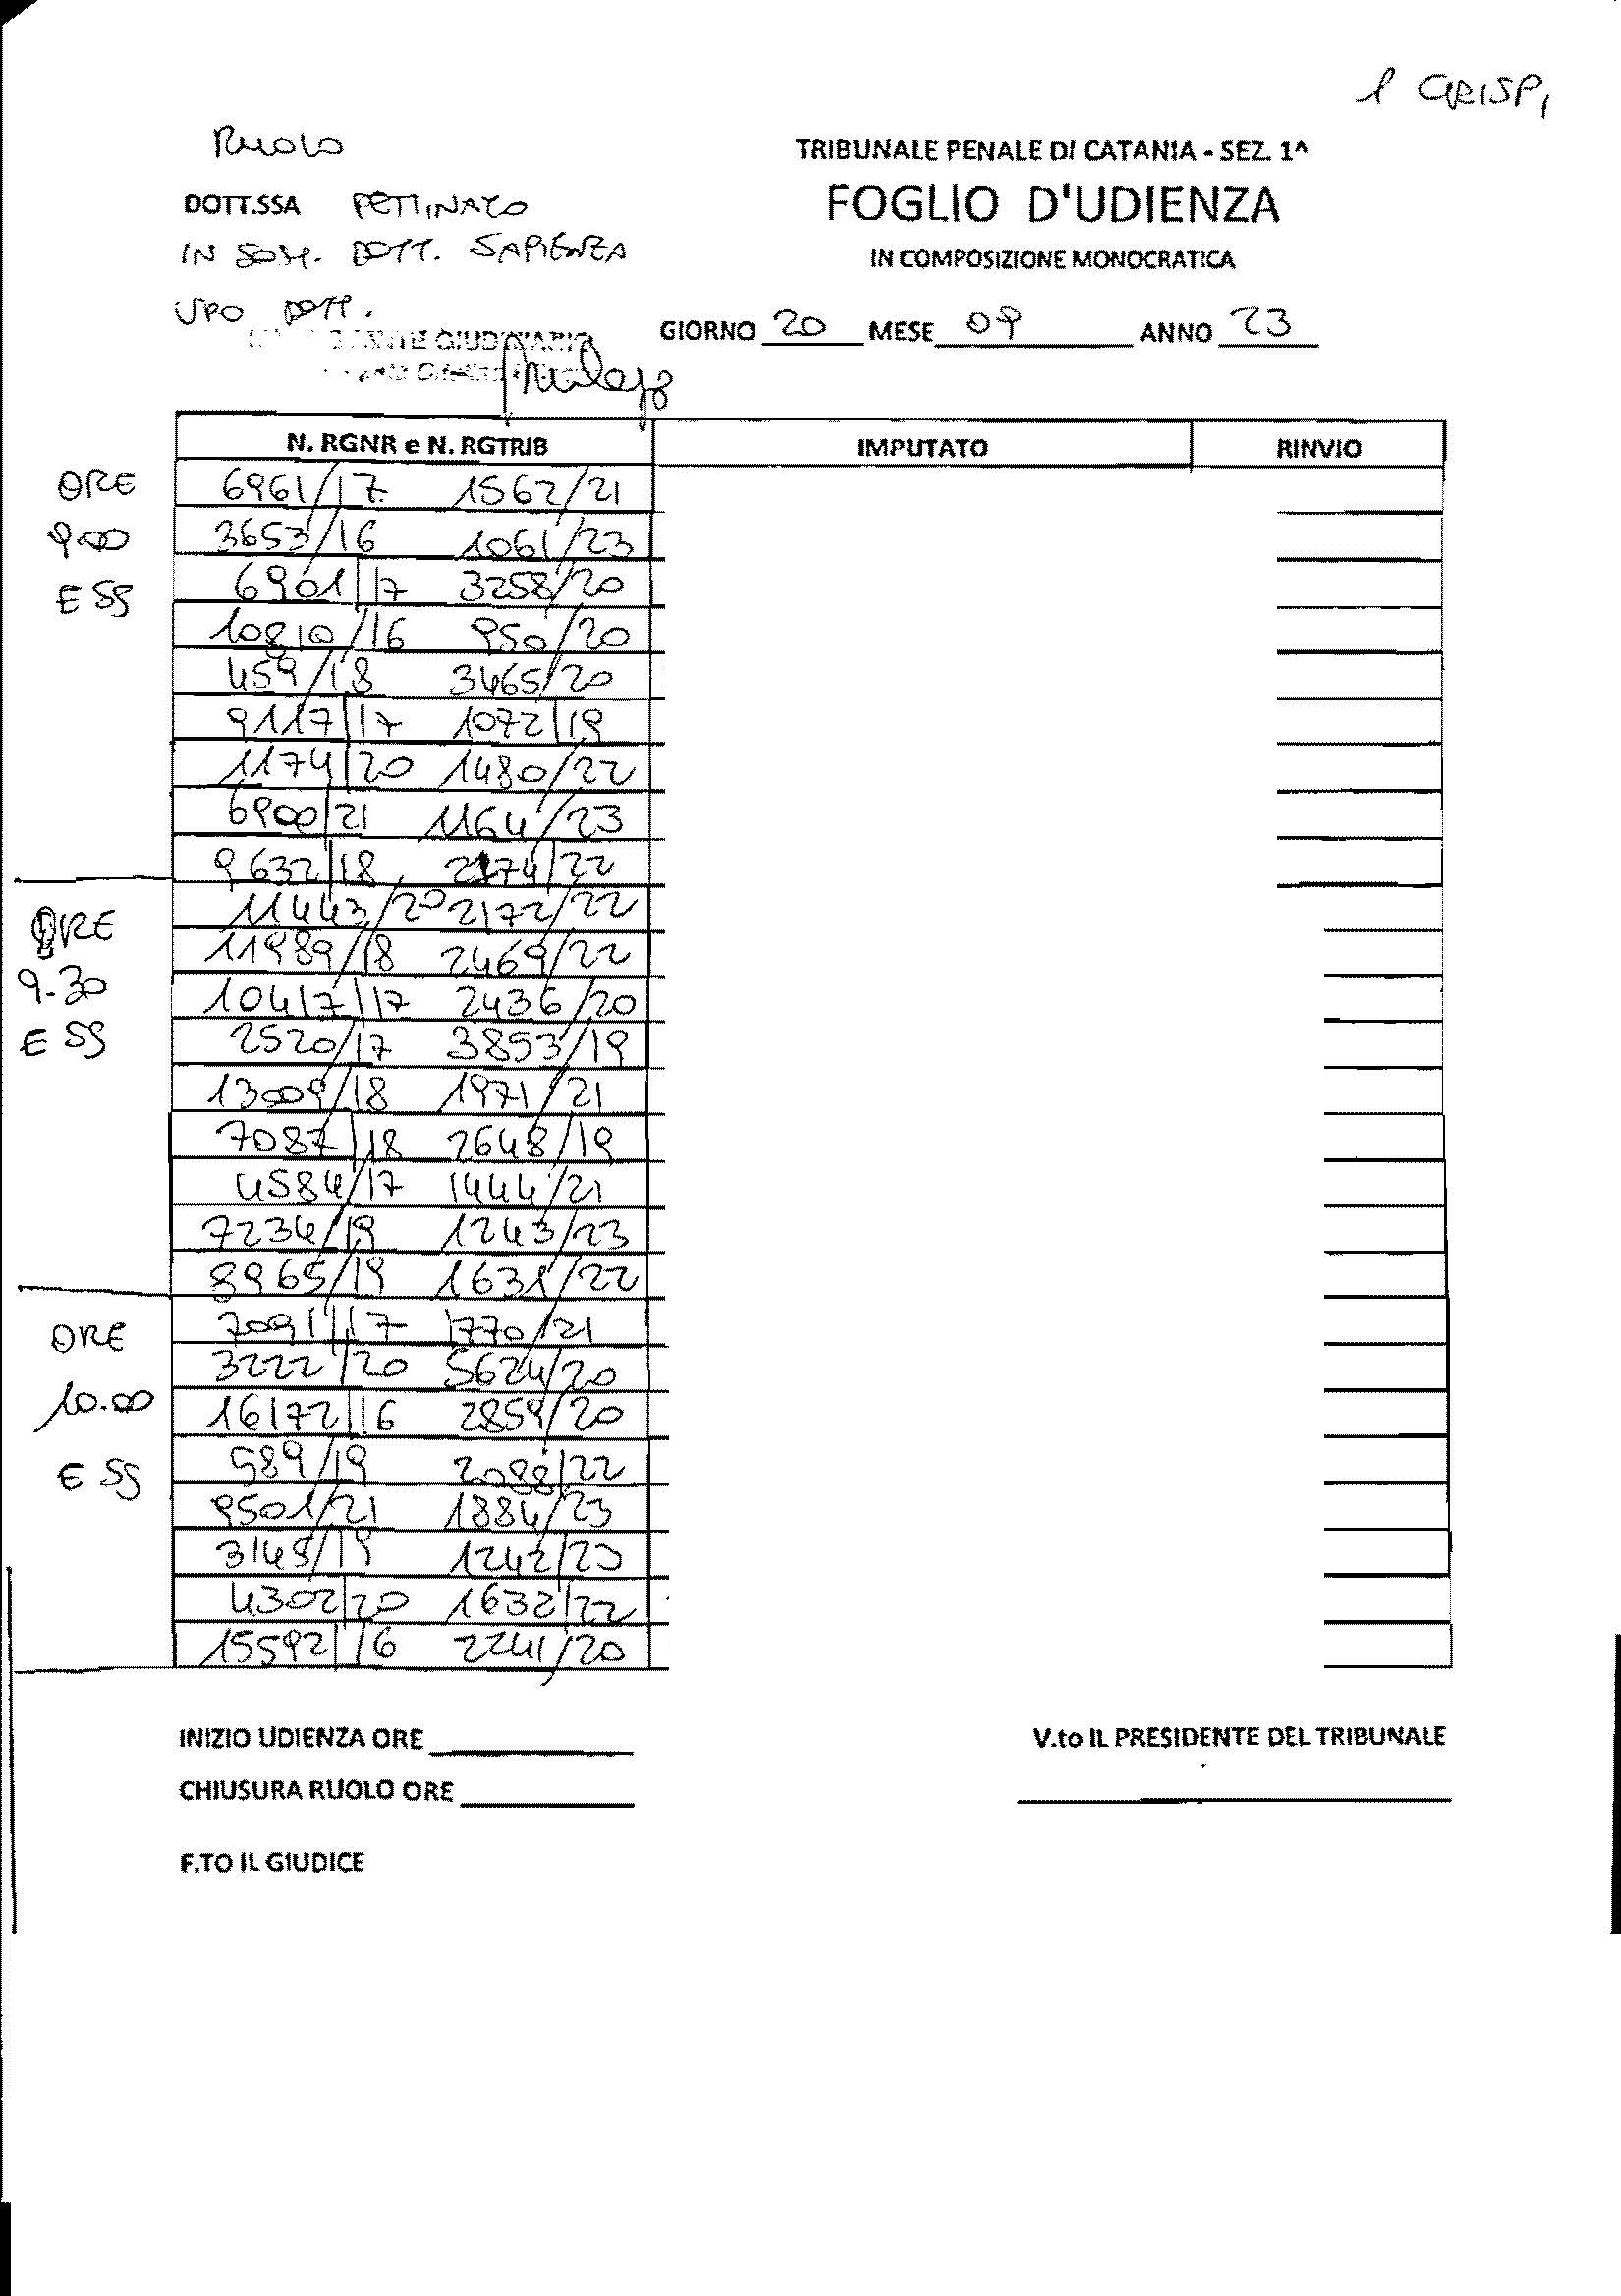 1 CRISPI
RUOLO
TRIBUNALE PENALE DI CATANIA - SEZ. 1^
DOTT.SSA PETTINATO
FOGLIO D'UDIENZA
IN SOST. DOTT. SAPIENZA
IN COMPOSIZIONE MONOCRATICA
VPO DOTT.
GIUDIZIARIO
GIORNO 20 MESE 09 ANNO 23
N. RGNR e N. RGTRIB IMPUTATO RINVIO
ORE 6961/17 1562/21
9.00 3653/16 1061/23
E SS 6901/17 3258/20
10810/16 950/20
459/18 3465/20
9117/17 1072/19
1174/20 1480/22
6900/21 1164/23
9632/18 2174/22
ORE 11443/20 2172/22
11989/18 2469/22
9.30 10417/17 2436/20
E SS 2520/17 3853/19
13009/18 1971/21
7087/18 2648/19
4584/17 1444/21
7234/19 1243/23
8965/19 1631/22
ORE 7091/17 1770/21
3222/20 5624/20
10.00 16172/16 2859/20
E SS 589/19 2088/22
9501/21 1884/23
3148/19 1242/23
4302/20 1632/22
15592/16 2241/20
INIZIO UDIENZA ORE
V.to IL PRESIDENTE DEL TRIBUNALE
CHIUSURA RUOLO ORE
F.TO IL GIUDICE